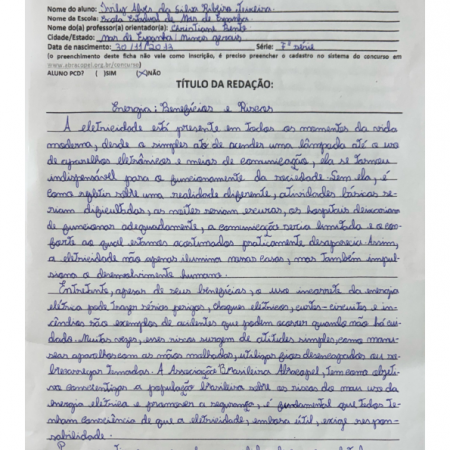 Nome do aluno: Alves da Silva Ribeiro Teixeira
Nome de Escola: Escola Estadual de Mar de Espanha
Nome do(a) professor(a) orientador(a): Christiane
Cidade/Estado: Mar de Espanha / Minas gerais
Data de nascimento: 30/11/2013 Série: 7ª série
(o preenchimento desta ficha não vale como inscrição, é preciso preencher o cadastro no sistema do concurso em
www.abracopel.org.br/concurso)
ALUNO PCD? ( )SIM (X)NÃO
TÍTULO DA REDAÇÃO:
Energia: Benefícios e Riscos
A eletricidade está presente em todos os momentos da vida
moderna, desde o simples ato de acender uma lâmpada até o uso
de aparelhos eletrônicos e meios de comunicação, ela se tornou
indispensável para o funcionamento da sociedade. Sem ela, é
como refletir sobre uma realidade diferente, atividades básicas se-
riam dificultadas, as noites seriam escuras, os hospitais deixariam
de funcionar adequadamente, a comunicação seria limitada e o con-
forto ao qual estamos acostumados praticamente desaparecia. Assim,
a eletricidade não apenas ilumina nossas casas, mas também impul-
siona o desenvolvimento humano.
Entretanto, apesar de seus benefícios, o uso incorreto da energia
elétrica pode trazer sérios perigos, choques elétricos, curtos-circuitos e in-
cêndios são exemplos de acidentes que podem ocorrer quando não há cui-
dado. Muitas vezes, esses riscos surgem de atitudes simples, como manu-
sear aparelhos com as mãos molhadas, utilizar fios desencapados ou so-
brecarregar tomadas. A Associação Brasileira Abracopel, tem como objeti-
vo conscientizar a população brasileira sobre os riscos do mau uso da
energia elétrica e promover a segurança, é fundamental que todos te-
nham consciência de que a eletricidade, embora útil, exige respon-
sabilidade.